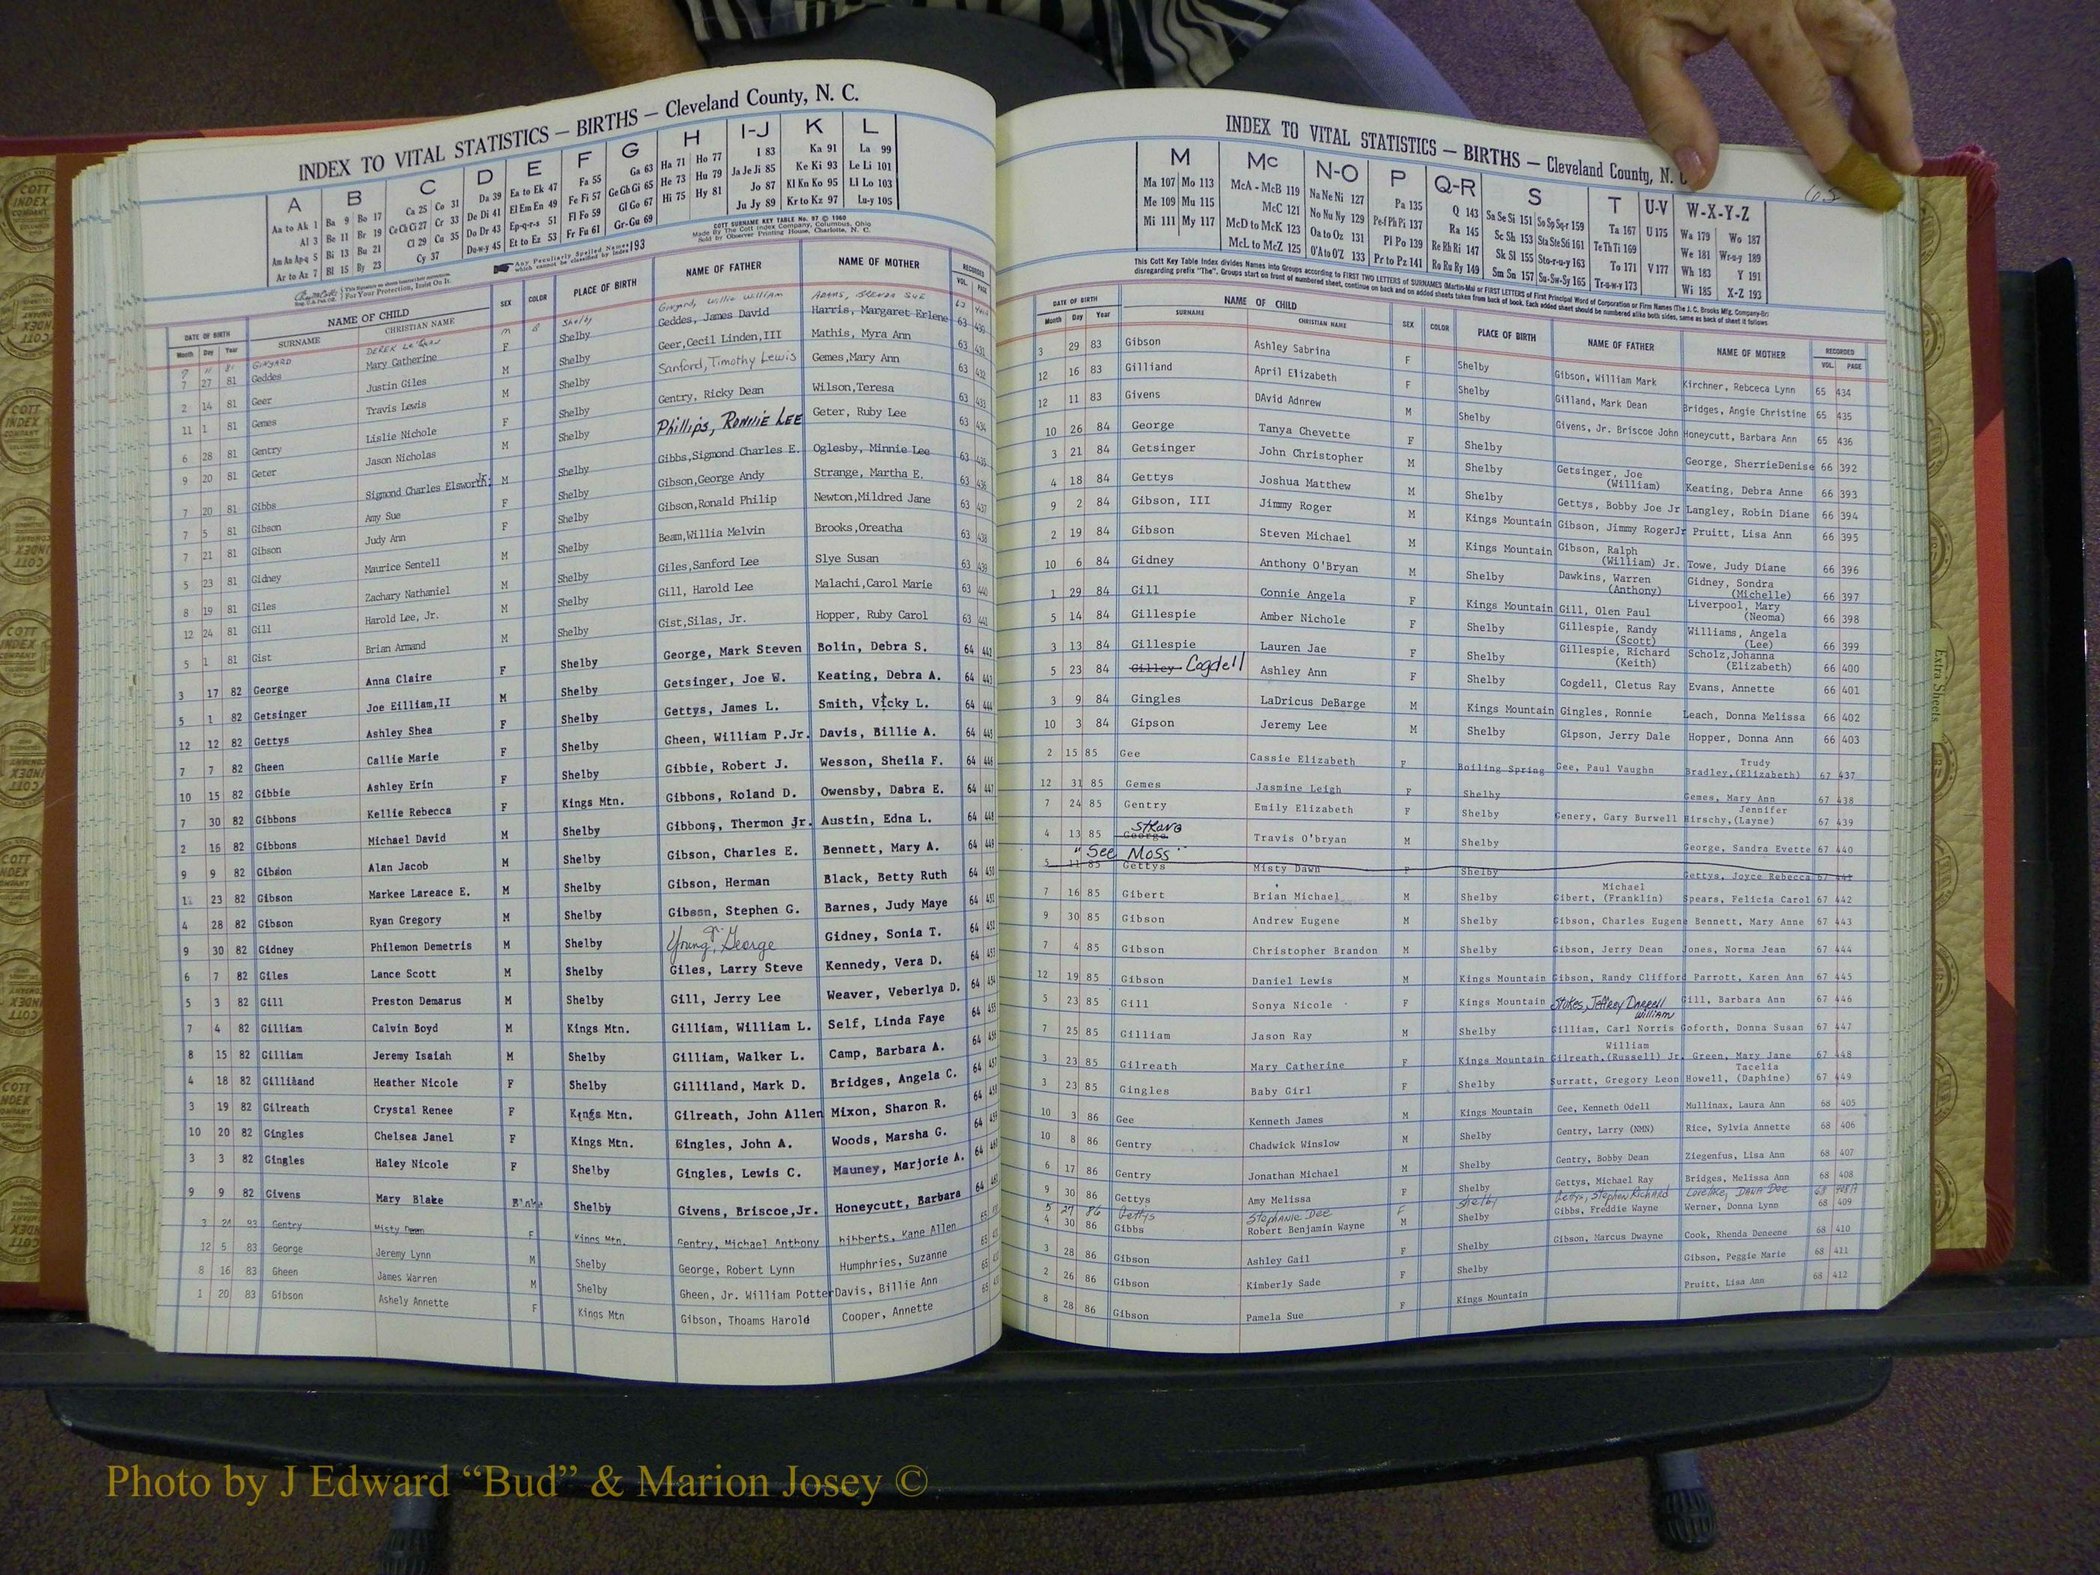 INDEX TO VITAL STATISTICS — BIRTHS — Cleveland County, N. C.
A B C D E F G H I-J K L
Aa to Ak 1 Ba 9 Bo 17 Ca 25 Co 31 Da 39 Ea to Ek 47 Fa 55 Ga 63 Ha 71 Ho 77 I 83 Ka 91 La 99
Al 3 Be 11 Br 19 Ce Ch Ci 27 Cr 33 De Di 41 El Em En 49 Fe Fi 57 Ge Gh Gi 65 He 73 Hu 79 Ja Je Ji 85 Ke Ki 93 Le Li 101
Am An Ap-q 5 Bi 13 Bu 21 Cl 29 Cu 35 Do Dr 43 Ep-q-r-s 51 Fl Fo 59 Gl Go 67 Hi 75 Hy 81 Jo 87 Kl Kn Ko 95 Ll Lo 103
Ar to Az 7 Bl 15 By 23 Cy 37 Du-w-y 45 Et to Ez 53 Fr Fu 61 Gr-Gu 69 Ju Jy 89 Kr to Kz 97 Lu-y 105
Any Peculiarly Spelled Names which cannot be classified by Index 193
COTT SURNAME KEY TABLE No. 97 © 1960
Made By The Cott Index Company, Columbus, Ohio
Sold by Observer Printing House, Charlotte, N. C.
For Your Protection, Insist On It.
DATE OF BIRTH NAME OF CHILD SEX COLOR PLACE OF BIRTH NAME OF FATHER NAME OF MOTHER RECORDED
Month Day Year SURNAME CHRISTIAN NAME VOL. PAGE
81 GINYARD DEREK M Shelby Ginyard, Willie William ADAMS, BRENDA SUE
7 27 81 Geddes Mary Catherine F Shelby Geddes, James David Harris, Margaret Erlene 63 430
2 14 81 Geer Justin Giles M Shelby Geer,Cecil Linden,III Mathis, Myra Ann 63 431
11 1 81 Gemes Travis Lewis M Shelby Sanford, Timothy Lewis Gemes,Mary Ann 63 432
6 28 81 Gentry Lislie Nichole F Shelby Gentry, Ricky Dean Wilson,Teresa 63 433
9 20 81 Geter Jason Nicholas M Shelby Phillips, RONNIE LEE Geter, Ruby Lee 63 434
7 20 81 Gibbs Sigmond Charles Elsworth, JR. M Shelby Gibbs,Sigmond Charles E. Oglesby, Minnie Lee 63 435
7 5 81 Gibson Amy Sue F Shelby Gibson,George Andy Strange, Martha E. 63 436
7 21 81 Gibson Judy Ann F Shelby Gibson,Ronald Philip Newton,Mildred Jane 63 437
5 23 81 Gidney Maurice Sentell M Shelby Beam,Willia Melvin Brooks,Oreatha 63 438
8 19 81 Giles Zachary Nathaniel M Shelby Giles,Sanford Lee Slye Susan 63 439
12 24 81 Gill Harold Lee, Jr. M Shelby Gill, Harold Lee Malachi,Carol Marie 63 440
5 1 81 Gist Brian Armand M Shelby Gist,Silas, Jr. Hopper, Ruby Carol 63 441
3 17 82 George Anna Claire F Shelby George, Mark Steven Bolin, Debra S. 64 442
5 1 82 Getsinger Joe Eilliam,II M Shelby Getsinger, Joe W. Keating, Debra A. 64 443
12 12 82 Gettys Ashley Shea F Shelby Gettys, James L. Smith, Vicky L. 64 444
7 7 82 Gheen Callie Marie F Shelby Gheen, William P.Jr. Davis, Billie A. 64 445
10 15 82 Gibbie Ashley Erin F Shelby Gibbie, Robert J. Wesson, Sheila F. 64 446
7 30 82 Gibbons Kellie Rebecca F Kings Mtn. Gibbons, Roland D. Owensby, Dabra E. 64 447
2 16 82 Gibbons Michael David M Shelby Gibbons, Thermon Jr. Austin, Edna L. 64 448
9 9 82 Gibson Alan Jacob M Shelby Gibson, Charles E. Bennett, Mary A. 64 449
11 23 82 Gibson Markee Lareace E. M Shelby Gibson, Herman Black, Betty Ruth 64 450
4 28 82 Gibson Ryan Gregory M Shelby Gibson, Stephen G. Barnes, Judy Maye 64 451
9 30 82 Gidney Philemon Demetris M Shelby Young, George Jr. Gidney, Sonia T. 64 452
6 7 82 Giles Lance Scott M Shelby Giles, Larry Steve Kennedy, Vera D. 64 453
5 3 82 Gill Preston Demarus M Shelby Gill, Jerry Lee Weaver, Veberlya D. 64 454
7 4 82 Gilliam Calvin Boyd M Kings Mtn. Gilliam, William L. Self, Linda Faye 64 455
8 15 82 Gilliam Jeremy Isaiah M Shelby Gilliam, Walker L. Camp, Barbara A. 64 456
4 18 82 Gilliland Heather Nicole F Shelby Gilliland, Mark D. Bridges, Angela C. 64 457
3 19 82 Gilreath Crystal Renee F Kings Mtn. Gilreath, John Allen Mixon, Sharon R. 64 458
10 20 82 Gingles Chelsea Janel F Kings Mtn. Gingles, John A. Woods, Marsha G. 64 459
3 3 82 Gingles Haley Nicole F Shelby Gingles, Lewis C. Mauney, Marjorie A. 64 460
9 9 82 Givens Mary Blake Shelby Givens, Briscoe,Jr. Honeycutt, Barbara 64
3 24 83 Gentry Misty Dean F Kings Mtn. Gentry, Michael Anthony hibberts, Kane Allen 65
12 5 83 George Jeremy Lynn M Shelby George, Robert Lynn Humphries, Suzanne 65
8 16 83 Gheen James Warren M Shelby Gheen, Jr. William Potter Davis, Billie Ann 65
1 20 83 Gibson Ashely Annette F Kings Mtn Gibson, Thoams Harold Cooper, Annette
INDEX TO VITAL STATISTICS — BIRTHS — Cleveland County, N. C.
65
M Mc N-O P Q-R S T U-V W-X-Y-Z
Ma 107 Mo 113 McA - McB 119 Na Ne Ni 127 Pa 135 Q 143 Sa Se Si 151 So Sp Sq-r 159 Ta 167 U 175 Wa 179 Wo 187
Me 109 Mu 115 McC 121 No Nu Ny 129 Pe-f Ph Pi 137 Ra 145 Sc Sh 153 Sta Ste Sti 161 Te Th Ti 169 We 181 Wr-u-y 189
Mi 111 My 117 McD to McK 123 Oa to Oz 131 Pl Po 139 Re Rh Ri 147 Sk Sl 155 Sto-r-u-y 163 To 171 V 177 Wh 183 Y 191
McL to McZ 125 O'A to O'Z 133 Pr to Pz 141 Ro Ru Ry 149 Sm Sn 157 Su-Sw-Sy 165 Tr-u-w-y 173 Wi 185 X-Z 193
This Cott Key Table Index divides Names into Groups according to FIRST TWO LETTERS of SURNAMES (Martin-Ma) or FIRST LETTERS of First Principal Word of Corporation or Firm Names (The J. C. Brooks Mfg. Company-Br)
disregarding prefix "The". Groups start on front of numbered sheet, continue on back and on added sheets taken from back of book. Each added sheet should be numbered alike both sides, same as back of sheet it follows
DATE OF BIRTH NAME OF CHILD SEX COLOR PLACE OF BIRTH NAME OF FATHER NAME OF MOTHER RECORDED
Month Day Year SURNAME CHRISTIAN NAME VOL. PAGE
3 29 83 Gibson Ashley Sabrina F Shelby Gibson, William Mark Kirchner, Rebceca Lynn 65 434
12 16 83 Gilliand April Elizabeth F Shelby Gilland, Mark Dean Bridges, Angie Christine 65 435
12 11 83 Givens DAvid Adnrew M Shelby Givens, Jr. Briscoe John Honeycutt, Barbara Ann 65 436
10 26 84 George Tanya Chevette F Shelby George, SherrieDenise 66 392
3 21 84 Getsinger John Christopher M Shelby Getsinger, Joe (William) Keating, Debra Anne 66 393
4 18 84 Gettys Joshua Matthew M Shelby Gettys, Bobby Joe Jr Langley, Robin Diane 66 394
9 2 84 Gibson, III Jimmy Roger M Kings Mountain Gibson, Jimmy RogerJr Pruitt, Lisa Ann 66 395
2 19 84 Gibson Steven Michael M Kings Mountain Gibson, Ralph (William) Jr. Towe, Judy Diane 66 396
10 6 84 Gidney Anthony O'Bryan M Shelby Dawkins, Warren (Anthony) Gidney, Sondra (Michelle) 66 397
1 29 84 Gill Connie Angela F Kings Mountain Gill, Olen Paul Liverpool, Mary (Neoma) 66 398
5 14 84 Gillespie Amber Nichole F Shelby Gillespie, Randy (Scott) Williams, Angela (Lee) 66 399
3 13 84 Gillespie Lauren Jae F Shelby Gillespie, Richard (Keith) Scholz,Johanna (Elizabeth) 66 400
5 23 84 Gilley Cogdell Ashley Ann F Shelby Cogdell, Cletus Ray Evans, Annette 66 401
3 9 84 Gingles LaDricus DeBarge M Kings Mountain Gingles, Ronnie Leach, Donna Melissa 66 402
10 3 84 Gipson Jeremy Lee M Shelby Gipson, Jerry Dale Hopper, Donna Ann 66 403
2 15 85 Gee Cassie Elizabeth F Boiling Spring Gee, Paul Vaughn Trudy Bradley,(Elizabeth) 67 437
12 31 85 Gemes Jasmine Leigh F Shelby Gemes, Mary Ann 67 438
7 24 85 Gentry Emily Elizabeth F Shelby Genery, Gary Burwell Jennifer Hirschy,(Layne) 67 439
4 13 85 George Strong Travis O'bryan M Shelby George, Sandra Evette 67 440
"See Moss"
5 11 85 Gettys Misty Dawn F Shelby Gettys, Joyce Rebecca 67 441
7 16 85 Gibert Brian Michael M Shelby Michael Gibert, (Franklin) Spears, Felicia Carol 67 442
9 30 85 Gibson Andrew Eugene M Shelby Gibson, Charles Eugene Bennett, Mary Anne 67 443
7 4 85 Gibson Christopher Brandon M Shelby Gibson, Jerry Dean Jones, Norma Jean 67 444
12 19 85 Gibson Daniel Lewis M Kings Mountain Gibson, Randy Clifford Parrott, Karen Ann 67 445
5 23 85 Gill Sonya Nicole F Kings Mountain Stokes, Jeffrey Darrell William Gill, Barbara Ann 67 446
7 25 85 Gilliam Jason Ray M Shelby Gilliam, Carl Norris Goforth, Donna Susan 67 447
3 23 85 Gilreath Mary Catherine F Kings Mountain William Gilreath,(Russell) Jr. Green, Mary Jane 67 448
3 23 85 Gingles Baby Girl F Shelby Surratt, Gregory Leon Tacelia Howell, (Daphine) 67 449
10 3 86 Gee Kenneth James M Kings Mountain Gee, Kenneth Odell Mullinax, Laura Ann 68 405
10 8 86 Gentry Chadwick Winslow M Shelby Gentry, Larry (NMN) Rice, Sylvia Annette 68 406
6 17 86 Gentry Jonathan Michael M Shelby Gentry, Bobby Dean Ziegenfus, Lisa Ann 68 407
9 30 86 Gettys Amy Melissa F Shelby Gettys, Michael Ray Bridges, Melissa Ann 68 408
5 27 86 Gettys Stephanie Dee F Shelby Gettys, Stephen Richard Lovelace, Dana Dee 68 408A
4 30 86 Gibbs Robert Benjamin Wayne M Shelby Gibbs, Freddie Wayne Werner, Donna Lynn 68 409
3 28 86 Gibson Ashley Gail F Shelby Gibson, Marcus Dwayne Cook, Rhenda Deneene 68 410
2 26 86 Gibson Kimberly Sade F Shelby Gibson, Peggie Marie 68 411
8 28 86 Gibson Pamela Sue F Kings Mountain Pruitt, Lisa Ann 68 412
Extra Sheets
COTT INDEX COMPANY
Photo by J Edward “Bud” & Marion Josey ©